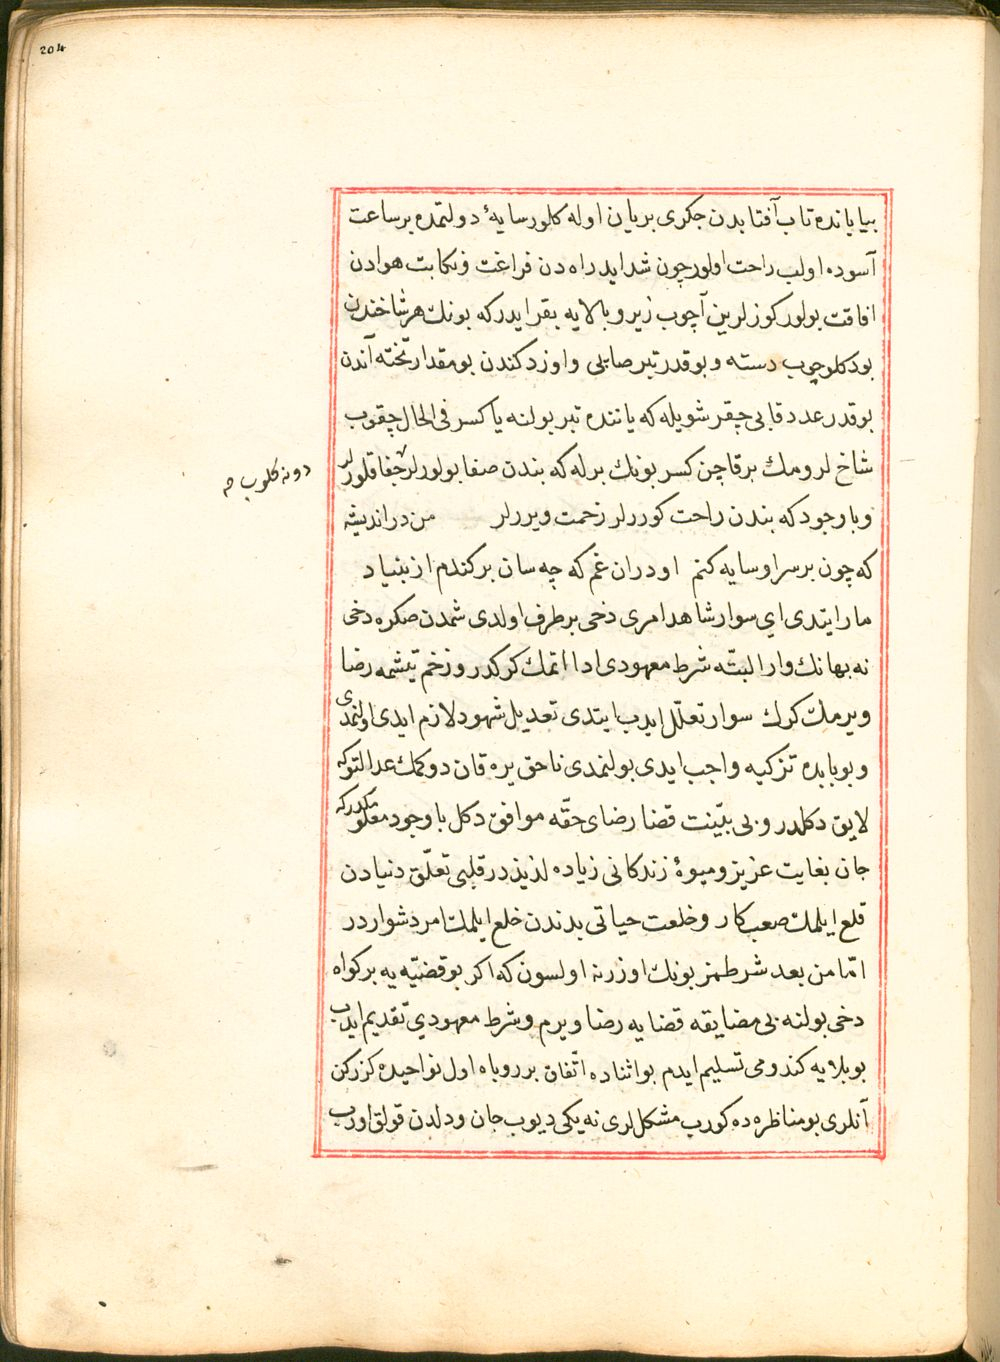 204
بیابانده تاب آفتابدن جکری بریان اوله کلور سایهٔ دولتمده بر ساعت
آسوده اولب راحت اولور چون شداید راه دن فراغت ونکابت هوادن
افاقت بولور کوزلرین آچوب زیر وبالایه بقر ایدرکه بونك هر شاخندن
بودکلو چوب دسته وبوقدر تبر صاپی واوزدکندن بومقدار تخته آندن
بوقدر عدد قاپی چقر شویله که یاننده تبر بولنه یا کسر فی الحال چقوب
شاخ لرومك برقاچن کسر بونك برله که بندن صفا بولورلر جفا قلورلر
دونه کلوب صه
وباوجود که بندن راحت کوررلر زحمت ویررلر من در اندیشه
که چون بر سر او سایه کنم او در ان غم که چه سان برکندم از بنیاد
مار ایتدی ای سوار شاهد امری دخی برطرف اولدی شمدن صکره دخی
نه بهانك وار البتّه شرط معهودی ادا اتمك کرکدر وزخم تیشمه رضا
ویرمك کرك سوار تعلّل ایدب ایتدی تعدیل شهود لازم ایدی اولنمدی
وبوبابده تزکیه واجب ایدی بولنمدی ناحق یره قان دوکمك عدالتوکه
لایق دکلدر وبی بیّنت قضا رضای حقّه موافق دکل باوجود معلومکدرکه
جان بغایت عزیز ومیوهٔ زندکانی زیاده لذیذدر قلبی تعلّق دنیادن
قلع ایلمك صعب کار وخلعت حیاتی بدندن خلع ایلمك امر دشواردر
امّا من بعد شرطمز بونك اوزرنه اولسون که اکر بو قضیّه یه بر کواه
دخی بولنه بی مضایقه قضایه رضا ویرم وشرط معهودی تقدیم ایدب
بوبلایه کندومی تسلیم ایدم بو اثناده اتّفاق بر روباه اول نواحیده کزرکن
آنلری بو مناظره ده کورب مشکللری نه یکی دیوب جان ودلدن قولق اورب